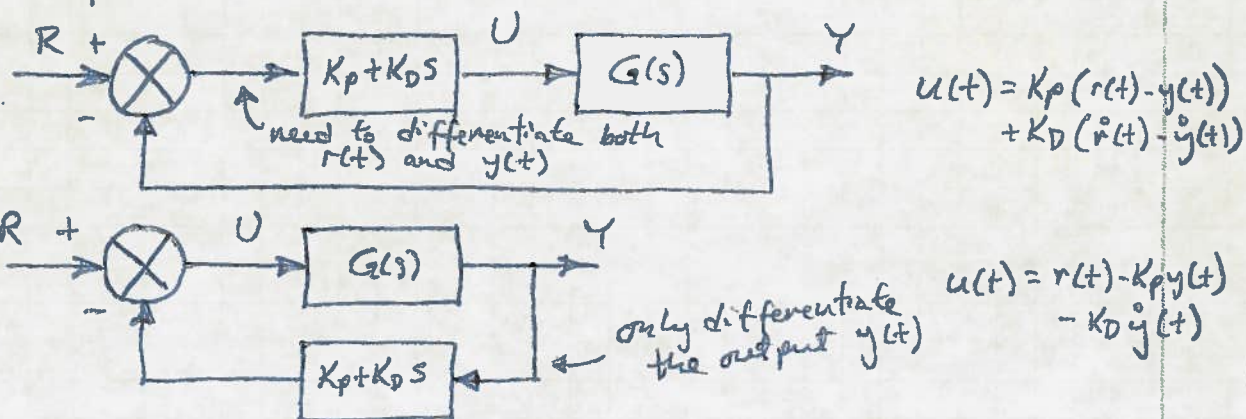 R + U Y
Kp + KD s G(s)
-
need to differentiate both
r(t) and y(t)
u(t) = Kp (r(t) - y(t))
+ KD (ṙ(t) - ẏ(t))
R + U Y
G(s)
-
Kp + KD s
only differentiate
the output y(t)
u(t) = r(t) - Kp y(t)
- KD ẏ(t)